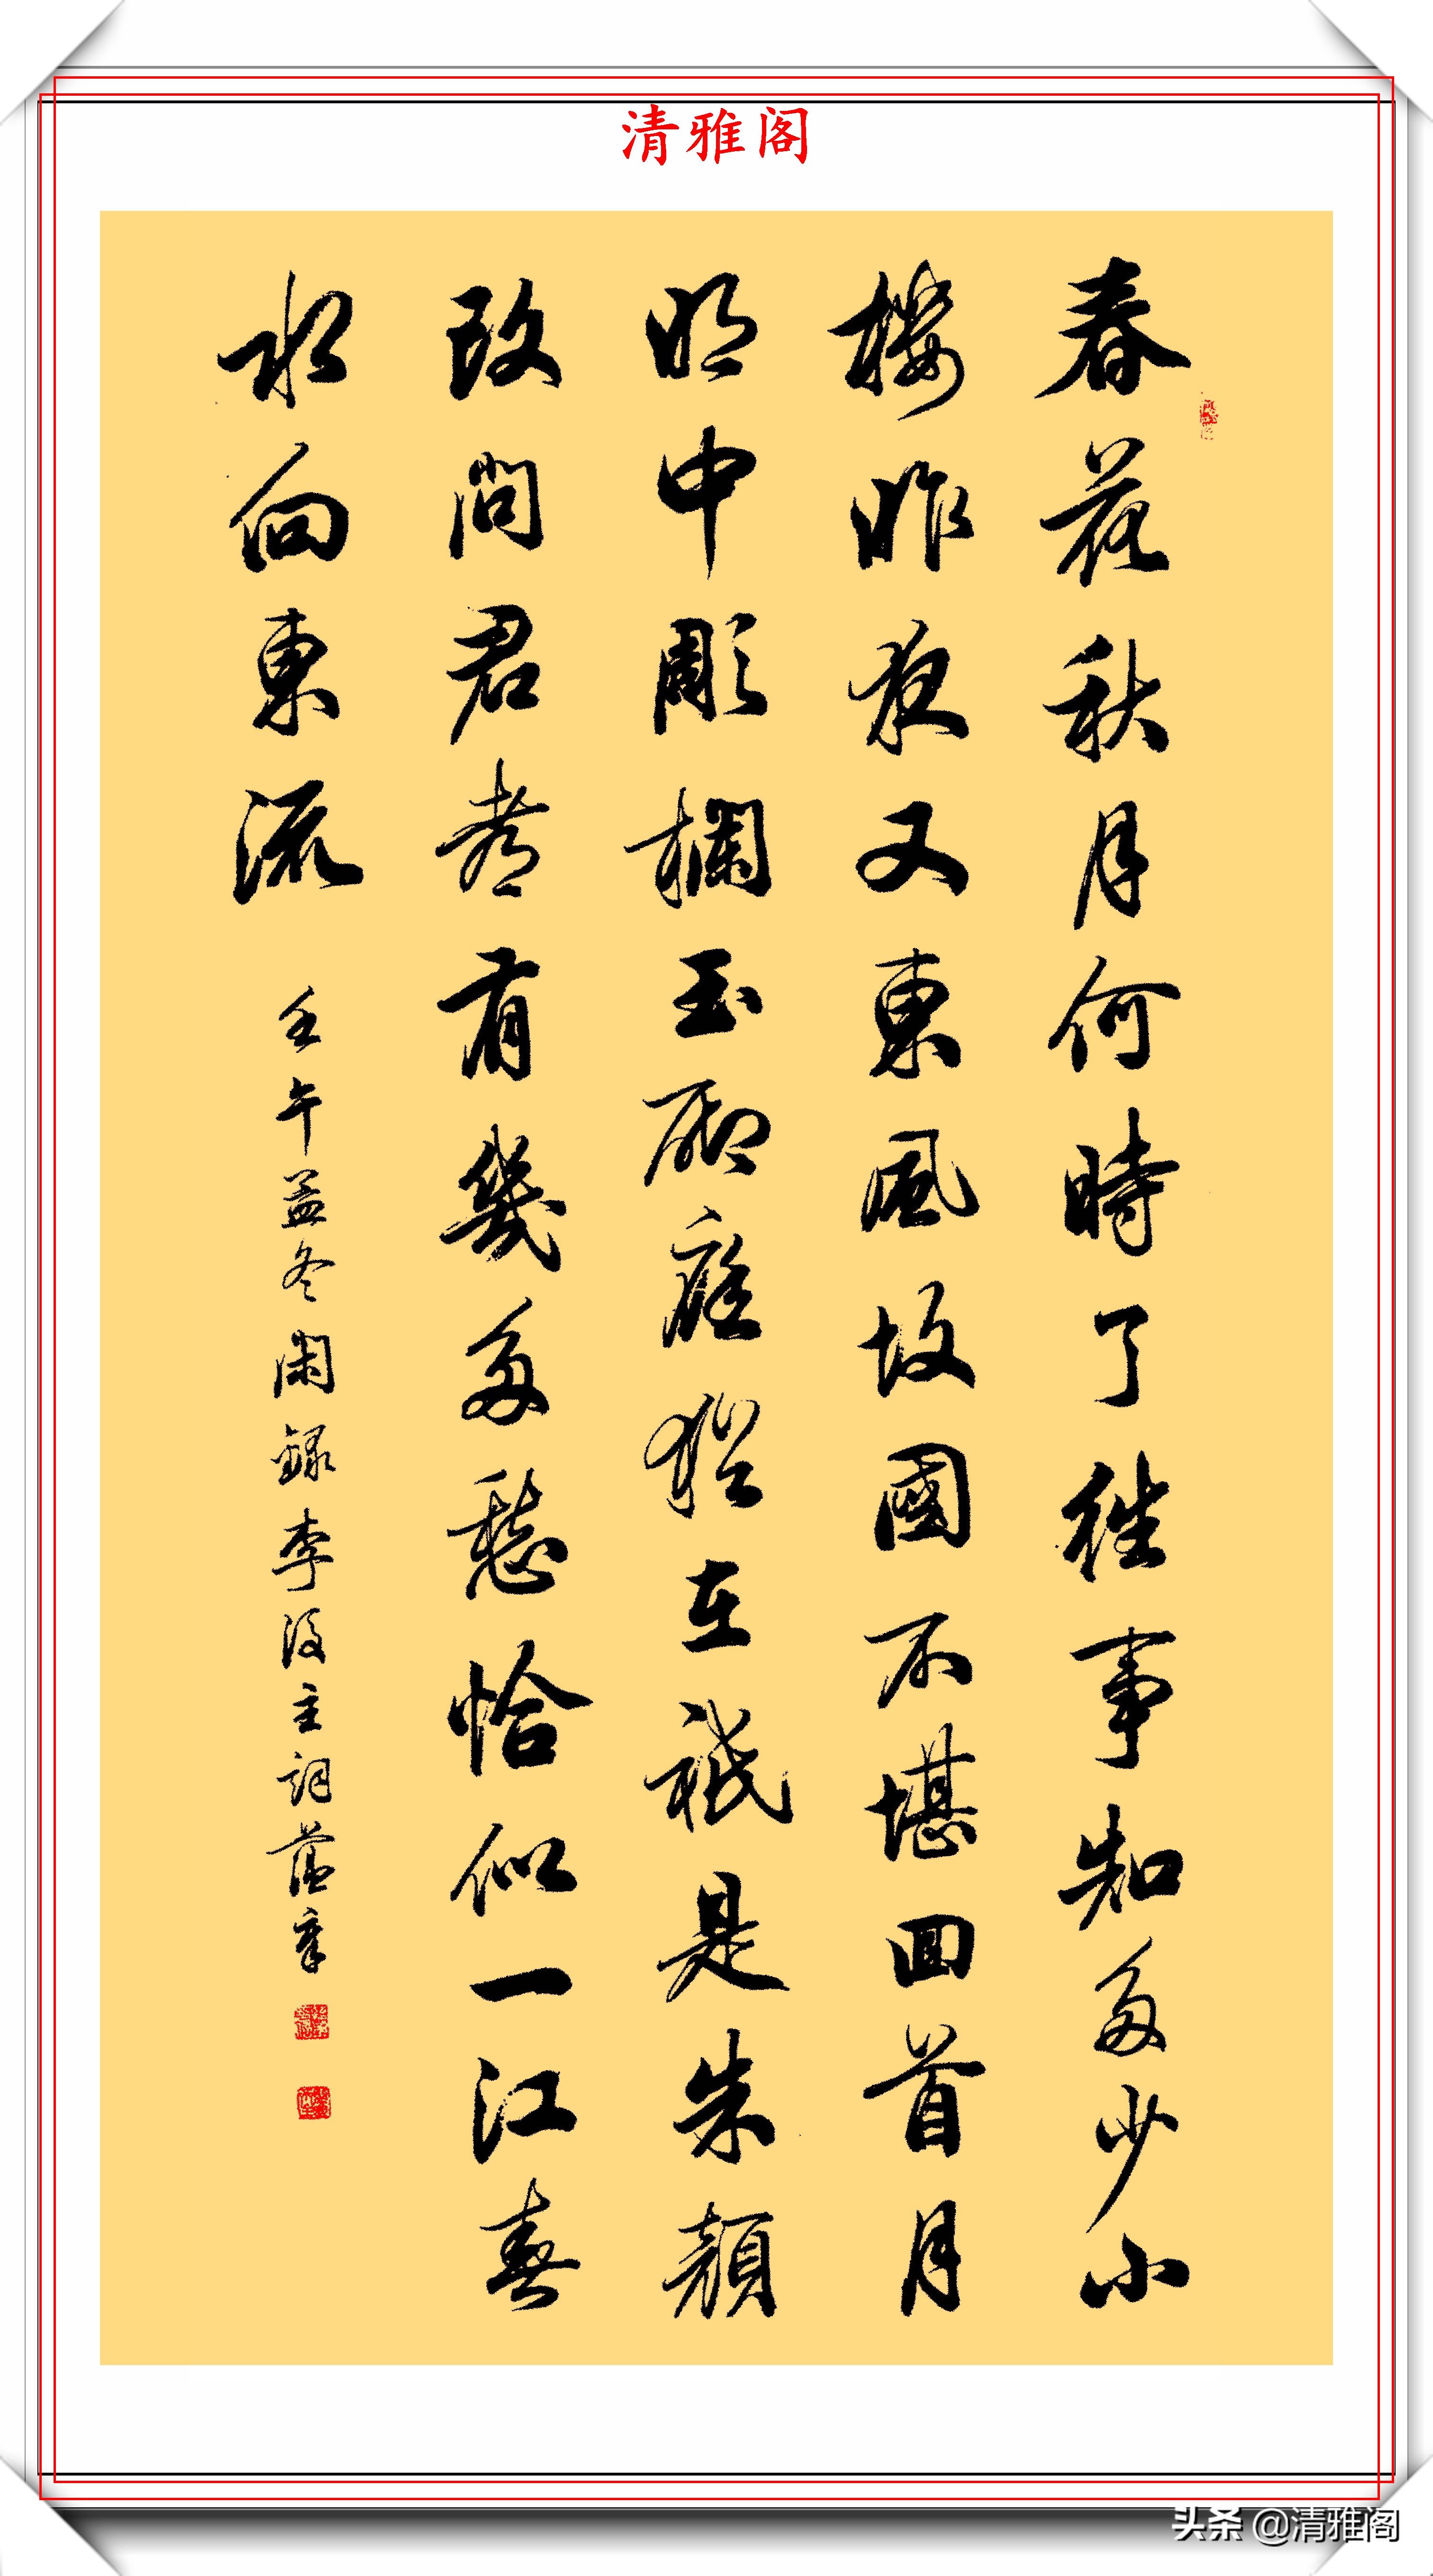 清雅阁
春花秋月何時了往事知多少小
樓昨夜又東風故國不堪回首月
明中彫欄玉砌應猶在祇是朱顔
改問君都有幾多愁恰似一江春
水向東流
壬午孟冬閑録李後主詞
头条 @清雅阁